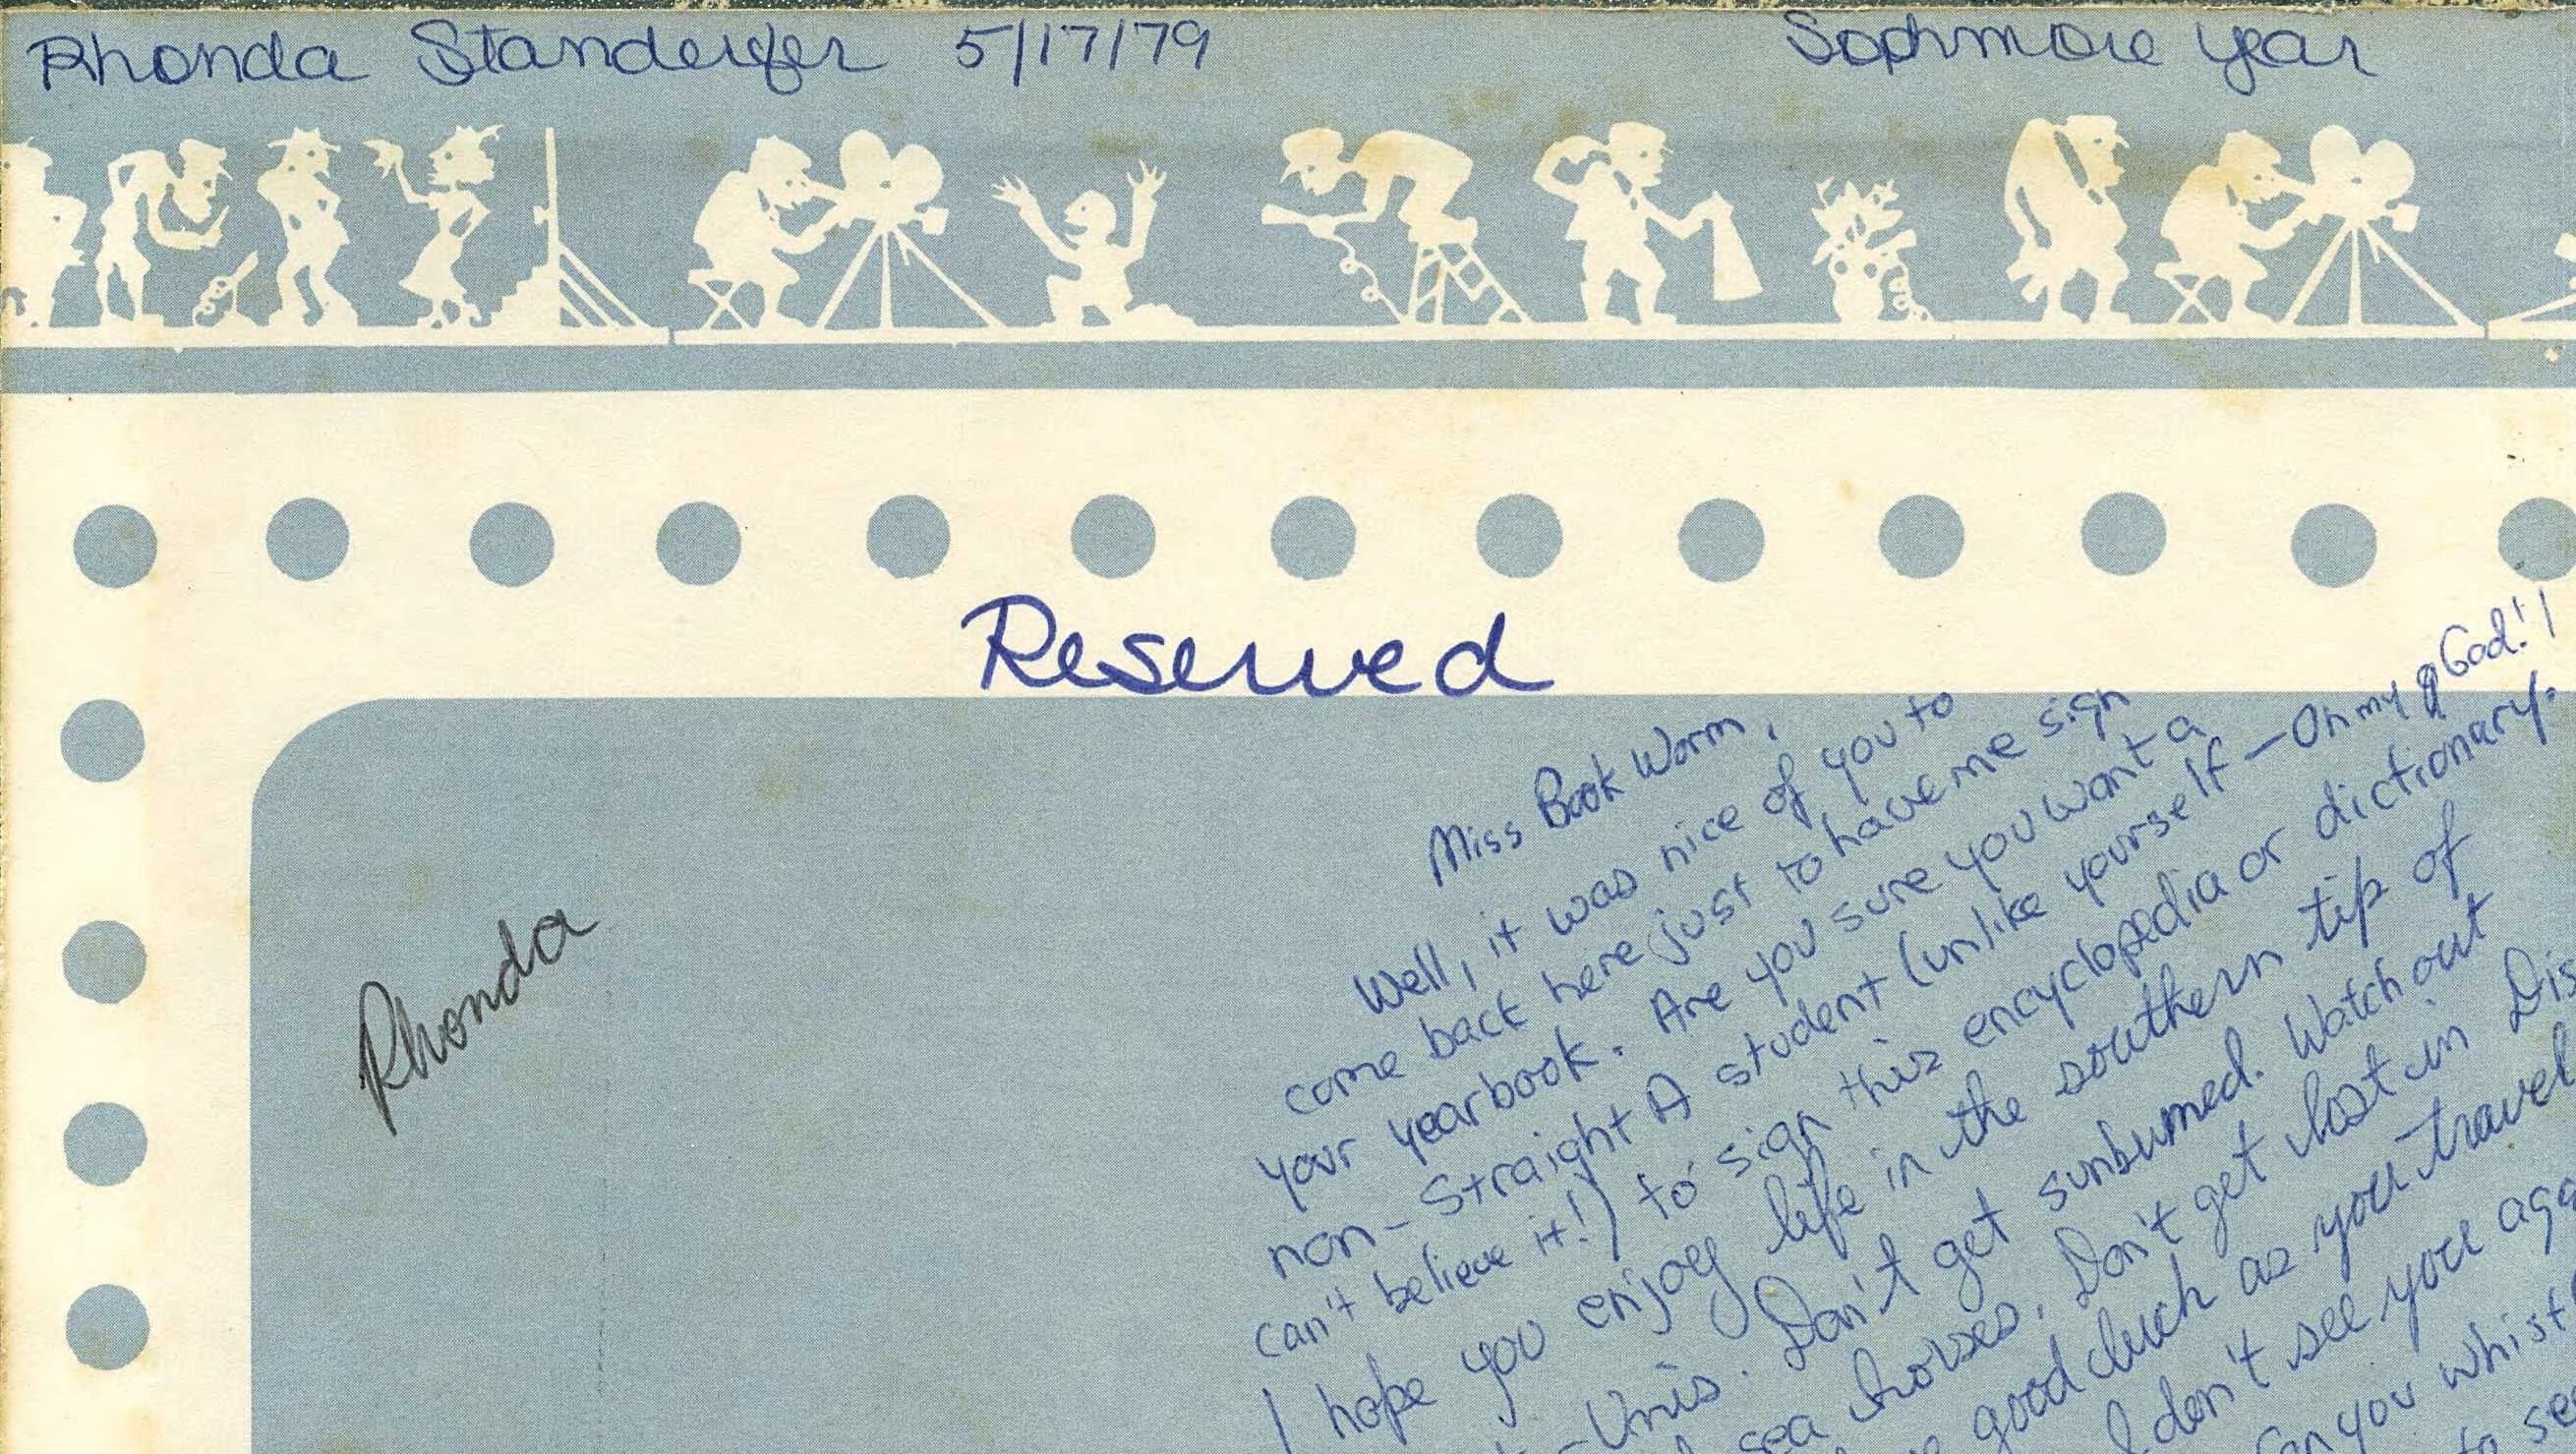 Rhonda Standerfer 5/17/79
Sophmore year
Reserved
Rhonda
Miss Book Worm,
Well, it was nice of you to
come back here just to have me sign
your yearbook. Are you sure you want a
non-Straight A student (unlike yourself - Oh my God!!
can't believe it!) to sign this encyclopedia or dictionary.
I hope you enjoy life in the southern tip of
Don't get sunburned. Watch out
sea horses. Don't get lost in Dis
good luck as you travel
I don't see you aga
you whist